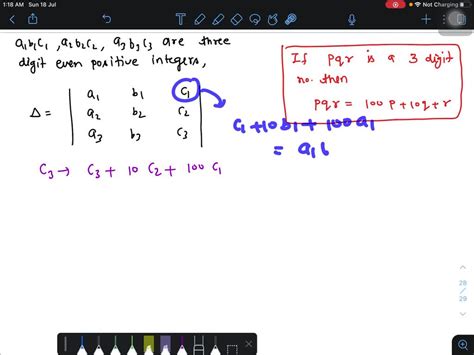 1:18 AM Sun 18 Jul
Not Charging
a₁b₁c₁, a₂b₂c₂, a₃b₃c₃ are three
digit even positive integers,
Δ = | a₁ b₁ c₁ |
| a₂ b₂ c₂ |
| a₃ b₃ c₃ |
C₃ → C₃ + 10 C₂ + 100 C₁
If pqr is a 3 digit
no. then
pqr = 100p + 10q + r
c₁ + 10b₁ + 100a₁
= a₁b
28
29